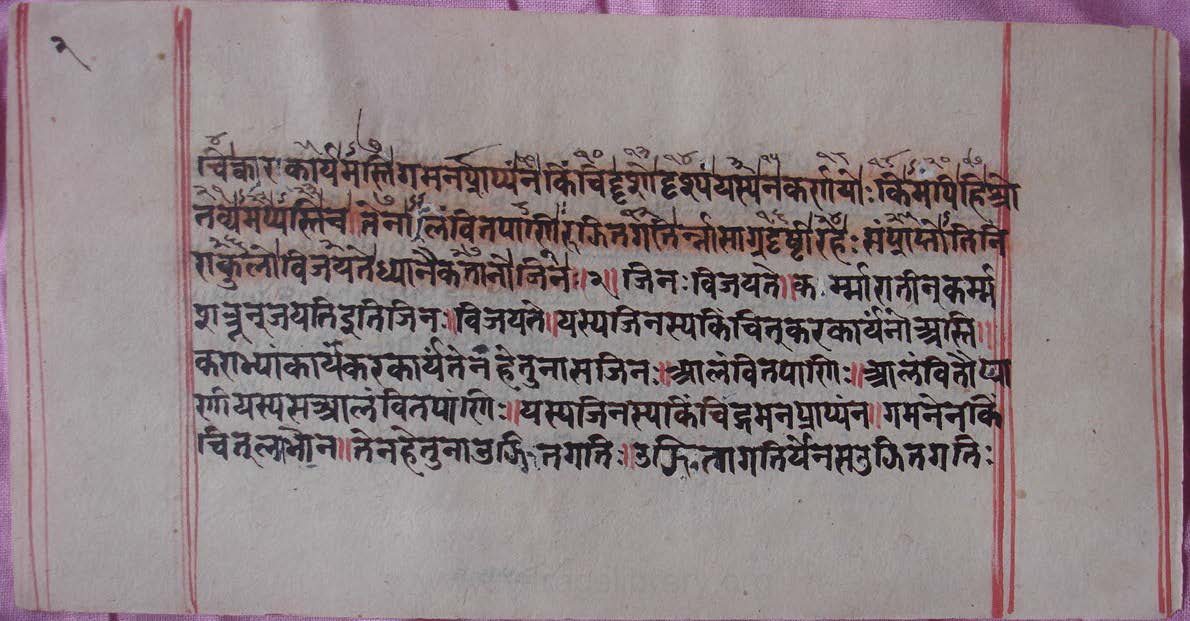 २
चित्कारकार्यमस्तिगमनप्राप्यंनकिंचिद्दृशोदृश्यंयस्यनकर्णयोःकिमपिहिश्रो
तव्यमप्यस्तिच तेनालंवितपाणिरुज्झितगतिर्न्नासाग्रदृष्टीरहः संप्राप्तोतिनि
राकुलोविजयतेध्यानैकतानोजिनः॥२॥ जिनःविजयते॥कर्म्मारातीन्कर्म्म
शत्रून्जयतिइतिजिनः॥विजयते॥यस्यजिनस्यकिंचित्करकार्यंनोअस्ति॥
कराभ्यांकार्यंकरकार्यंतेनहेतुनासजिनः॥आलंवितपाणिः॥आलंवितौपा
णीयस्यसआलंवितपाणिः॥यस्यजिनस्यकिंचिद्गमनप्राप्यंन॥गमनेनकिं
चित्लभ्यंन॥तेनहेतुनाउज्झितगतिः॥उज्झितागतिर्येनसउज्झितगतिः